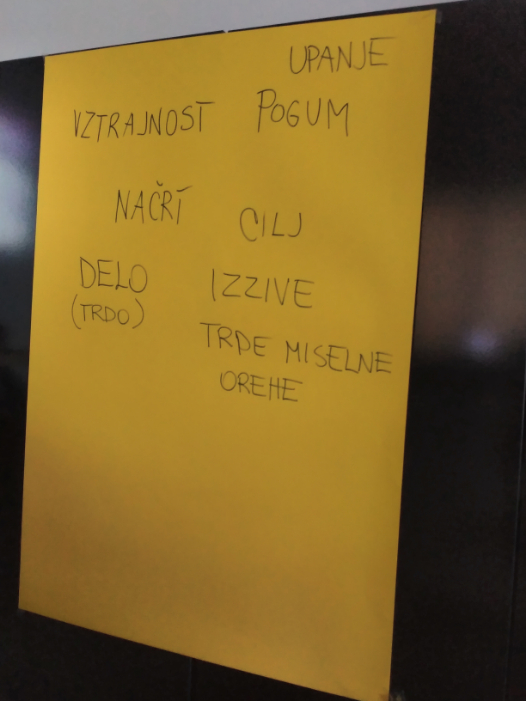 UPANJE
VZTRAJNOST POGUM
NAČRT CILJ
DELO IZZIVE
(TRDO)
TRDE MISELNE
OREHE